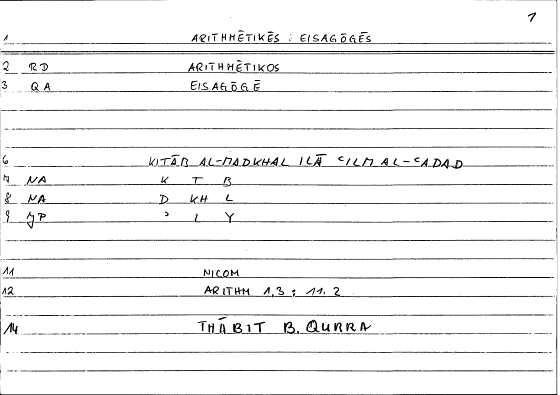 1
1 ARITHMĒTIKĒS : EISAGŌGĒS
2 RD ARITHMĒTIKOS
3 QA EISAGŌGĒ
6 KITĀB AL-MADKHAL ILĀ ʿILM AL-ʿADAD
7 NA K T B
8 NA D KH L
9 JP ʾ L Y
11 NICOM
12 ARITHM 1,3 : 11.2
14 THĀBIT B. QURRA